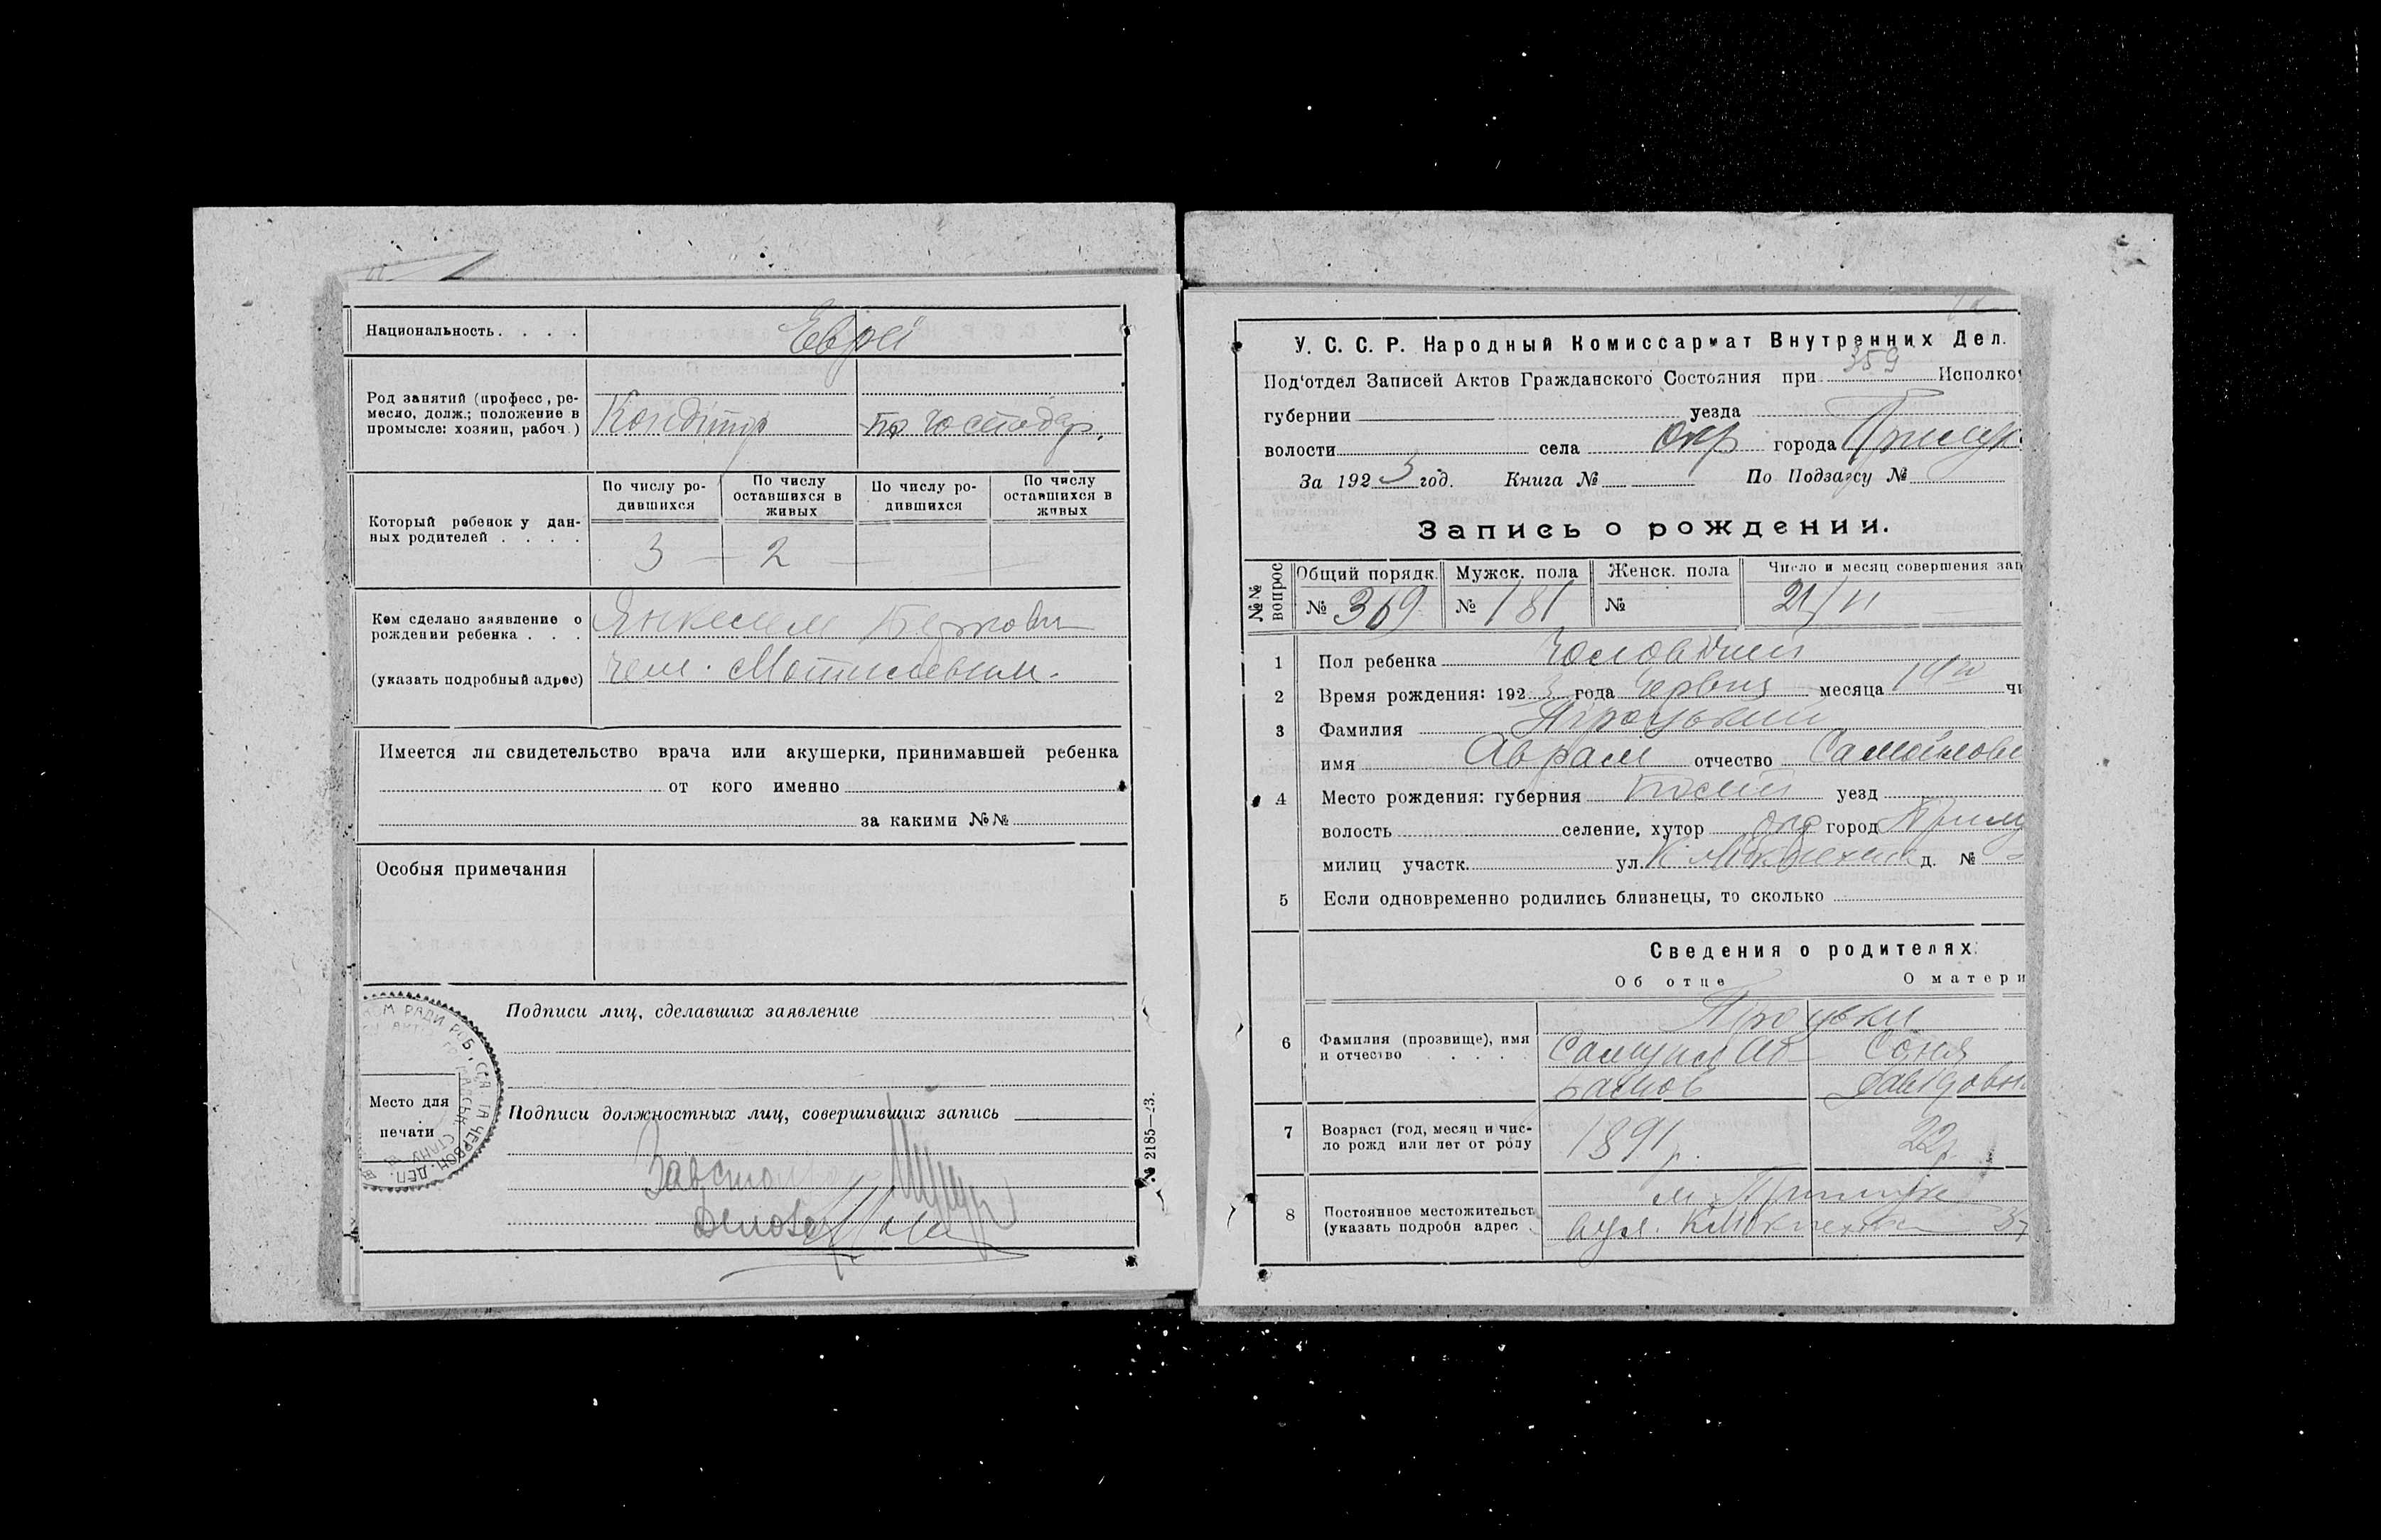 Национальность. . . .
Еврей
Род занятий (професс, ре-
месло, долж.; положение в
промысле: хозяин, рабоч.)
Кондітор
по господар.
Который ребенок у дан-
ных родителей . . . .
По числу ро-
дившихся
По числу
оставшихся в
живых
По числу ро-
дившихся
По числу
оставшихся в
живых
3 — 2 —
Кем сделано заявление о
рождении ребенка . . .
(указать подробный адрес)
Янкелем Беркови
чем
Имеется ли свидетельство врача или акушерки, принимавшей ребенка
от кого именно
за какими №№
Особыя примечания
Подписи лиц, сделавших заявление
Место для
печати
Подписи должностных лиц, совершивших запись
№ 2185—23.
У. С. С. Р. Народный Комиссариат Внутренних Дел.
Под'отдел Записей Актов Гражданского Состояния при 359 Исполко
губернии уезда
волости села окр города Прилук
За 1923 год. Книга № По Подзагсу №
Запись о рождении.
№№
вопрос
Общий порядк. Мужск. пола Женск. пола Число и месяц совершения зап
№ 369 № 181 № 21/VI
1 Пол ребенка Чоловічий
2 Время рождения: 1923 года Червня месяца 14го чи
3 Фамилия
имя Аврам отчество Самойлови
4 Место рождения: губерния уезд
волость селение, хутор окр город Прилу
милиц участк. ул. д. №
5 Если одновременно родились близнецы, то сколько
Сведения о родителях.
Об отце О матери
6 Фамилия (прозвище), имя
и отчество . . . .
Самуил Аб-
рамов
Соня
Давідовн
7 Возраст (год, месяц и чис-
ло рожд или лет от роду
1891 р.
22 р
8 Постоянное местожительст
(указать подробн адрес
м. Прилуке
вул. 37